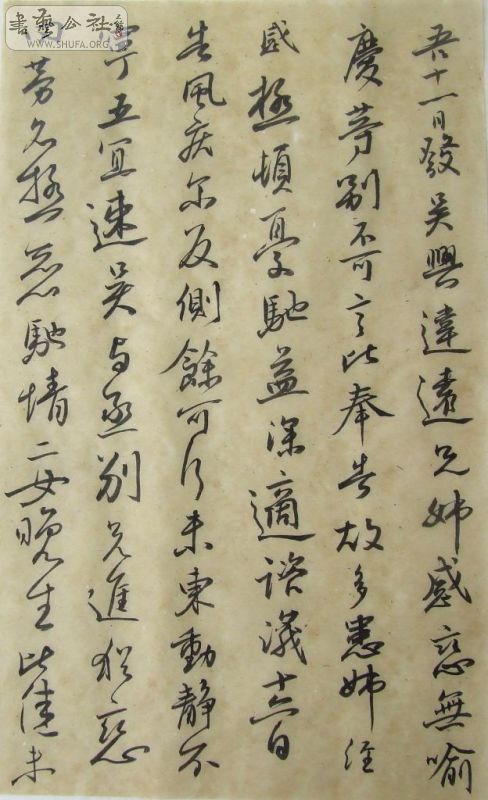 書藝公社
WWW.SHUFA.ORG
吾十一日發吳興違遠兄姊感戀無喻
慶等別不可言比奉告故多患姊經
感極頓憂馳益深適諮議十六日
告風疾小反側餘可行未東動靜不
寧五宜速吳與丞別兄進猶戀
勞名極惡馳情二女晚生比佳未